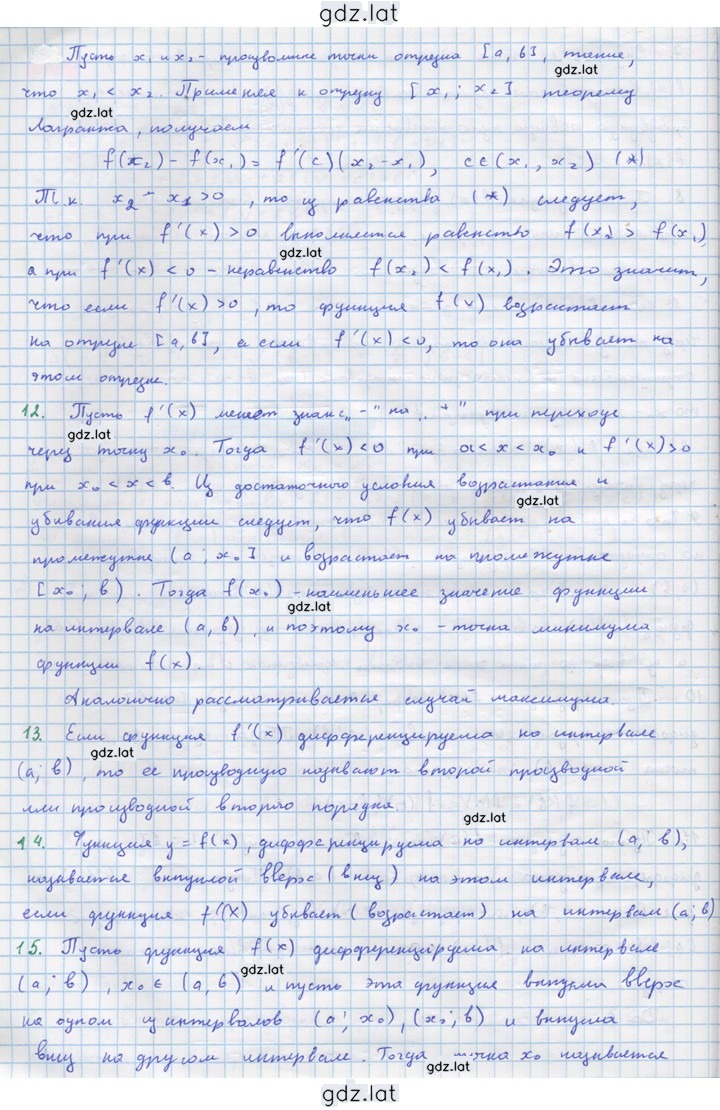 gdz.lat
Пусть x₁ и x₂ - произвольные точки отрезка [a, b], такие,
gdz.lat
что x₁ < x₂. Применяя к отрезку [x₁; x₂] теорему
gdz.lat
Лагранжа, получаем
f(x₂) - f(x₁) = f'(c)(x₂ - x₁), c∈(x₁, x₂) (*)
gdz.lat
Т.к. x₂ - x₁ > 0, то из равенства (*) следует,
что при f'(x) > 0 выполняется равенство f(x₂) > f(x₁)
gdz.lat
а при f'(x) < 0 - неравенство f(x₂) < f(x₁). Это значит,
что если f'(x) > 0, то функция f(x) возрастает
gdz.lat
на отрезке [a, b], а если f'(x) < 0, то она убывает на
этом отрезке.
12. Пусть f'(x) меняет знак с „-" на „+" при переходе
gdz.lat
через точку x₀. Тогда f'(x) < 0 при a < x < x₀ и f'(x) > 0
при x₀ < x < b. Из достаточного условия возрастания и
gdz.lat
убывания функции следует, что f(x) убывает на
промежутке (a; x₀] и возрастает на промежутке
[x₀; b). Тогда f(x₀) - наименьшее значение функции
gdz.lat
на интервале (a, b), и поэтому x₀ - точка минимума
функции f(x).
Аналогично рассматривается случай максимума.
13. Если функция f'(x) дифференцируема на интервале
gdz.lat
(a; b), то ее производную называют второй производной
или производной второго порядка.
gdz.lat
14. Функция y = f(x), дифференцируема на интервале (a; b),
называется выпуклой вверх (вниз) на этом интервале,
gdz.lat
если функция f'(x) убывает (возрастает) на интервале (a; b)
15. Пусть функция f(x) дифференцируема на интервале
gdz.lat
(a; b), x₀ ∈ (a, b) и пусть эта функция выпукла вверх
на одном из интервалов (a; x₀), (x₀; b) и выпукла
вниз на другом интервале. Тогда точка x₀ называется
gdz.lat
gdz.lat